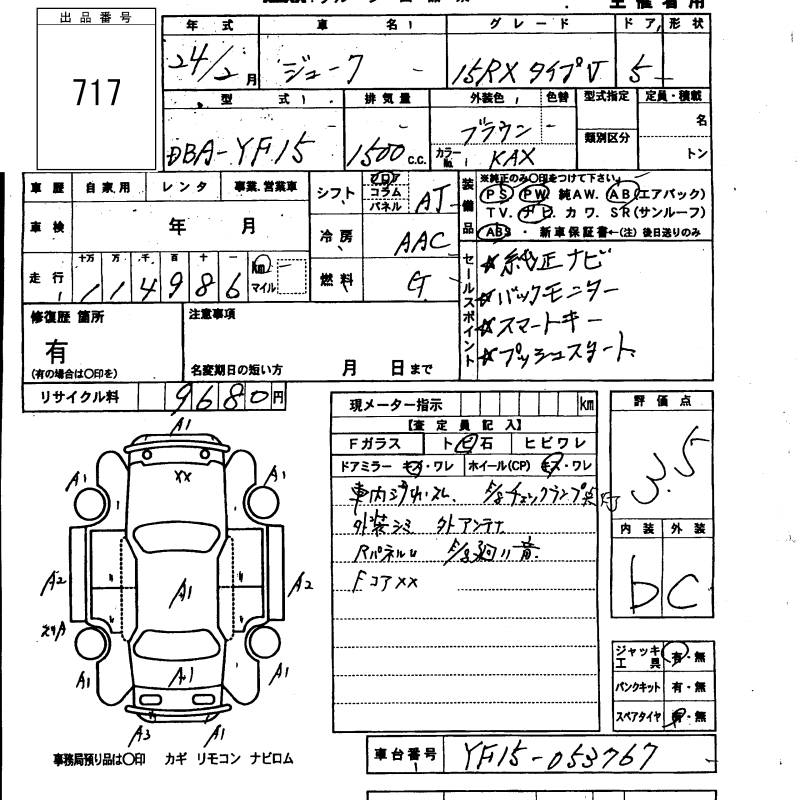 出品番号
717
年式 車名 グレード ドア 形状
24/2月 ジューク 15RX タイプV 5
型式 排気量 外装色 色替 型式指定 定員・積載
DBA-YF15 1500 c.c. ブラウン 名
カラーNo. KAX 類別区分 トン
車歴 自家用 レンタ 事業.営業車
シフト フロア コラム パネル AT
装備品
※純正のみ○印をつけて下さい
PS PW 純AW. AB(エアバック)
TV. ナビ カワ. SR(サンルーフ)
ABS・新車保証書←(注)後日送りのみ
車検 年 月
冷房 AAC
走行 十万 万 千 百 十 一
114986 km マイル
燃料 G
セールスポイント
☆純正ナビ
☆バックモニター
☆スマートキー
☆プッシュスタート
修復歴 箇所
有
(有の場合は○印を)
注意事項
名変期日の短い方 月 日まで
リサイクル料 9680円
現メーター指示 km
【査定員記入】
Fガラス トビ石 ヒビワレ
ドアミラー キズ・ワレ ホイール(CP) キズ・ワレ
車内 F/8チェックランプ点灯
外装シミ 外アンテナ
Rパネルu F/8廻り音
FコアXX
評価点
3.5
内装 外装
b C
ジャッキ工具 有・無
パンクキット 有・無
スペアタイヤ 有・無
A1
XX
A1 A1
A2 A1 A2
A1 A1 A1
A3 A1
事務局預り品は○印 カギ リモコン ナビロム
車台番号 YF15-053767